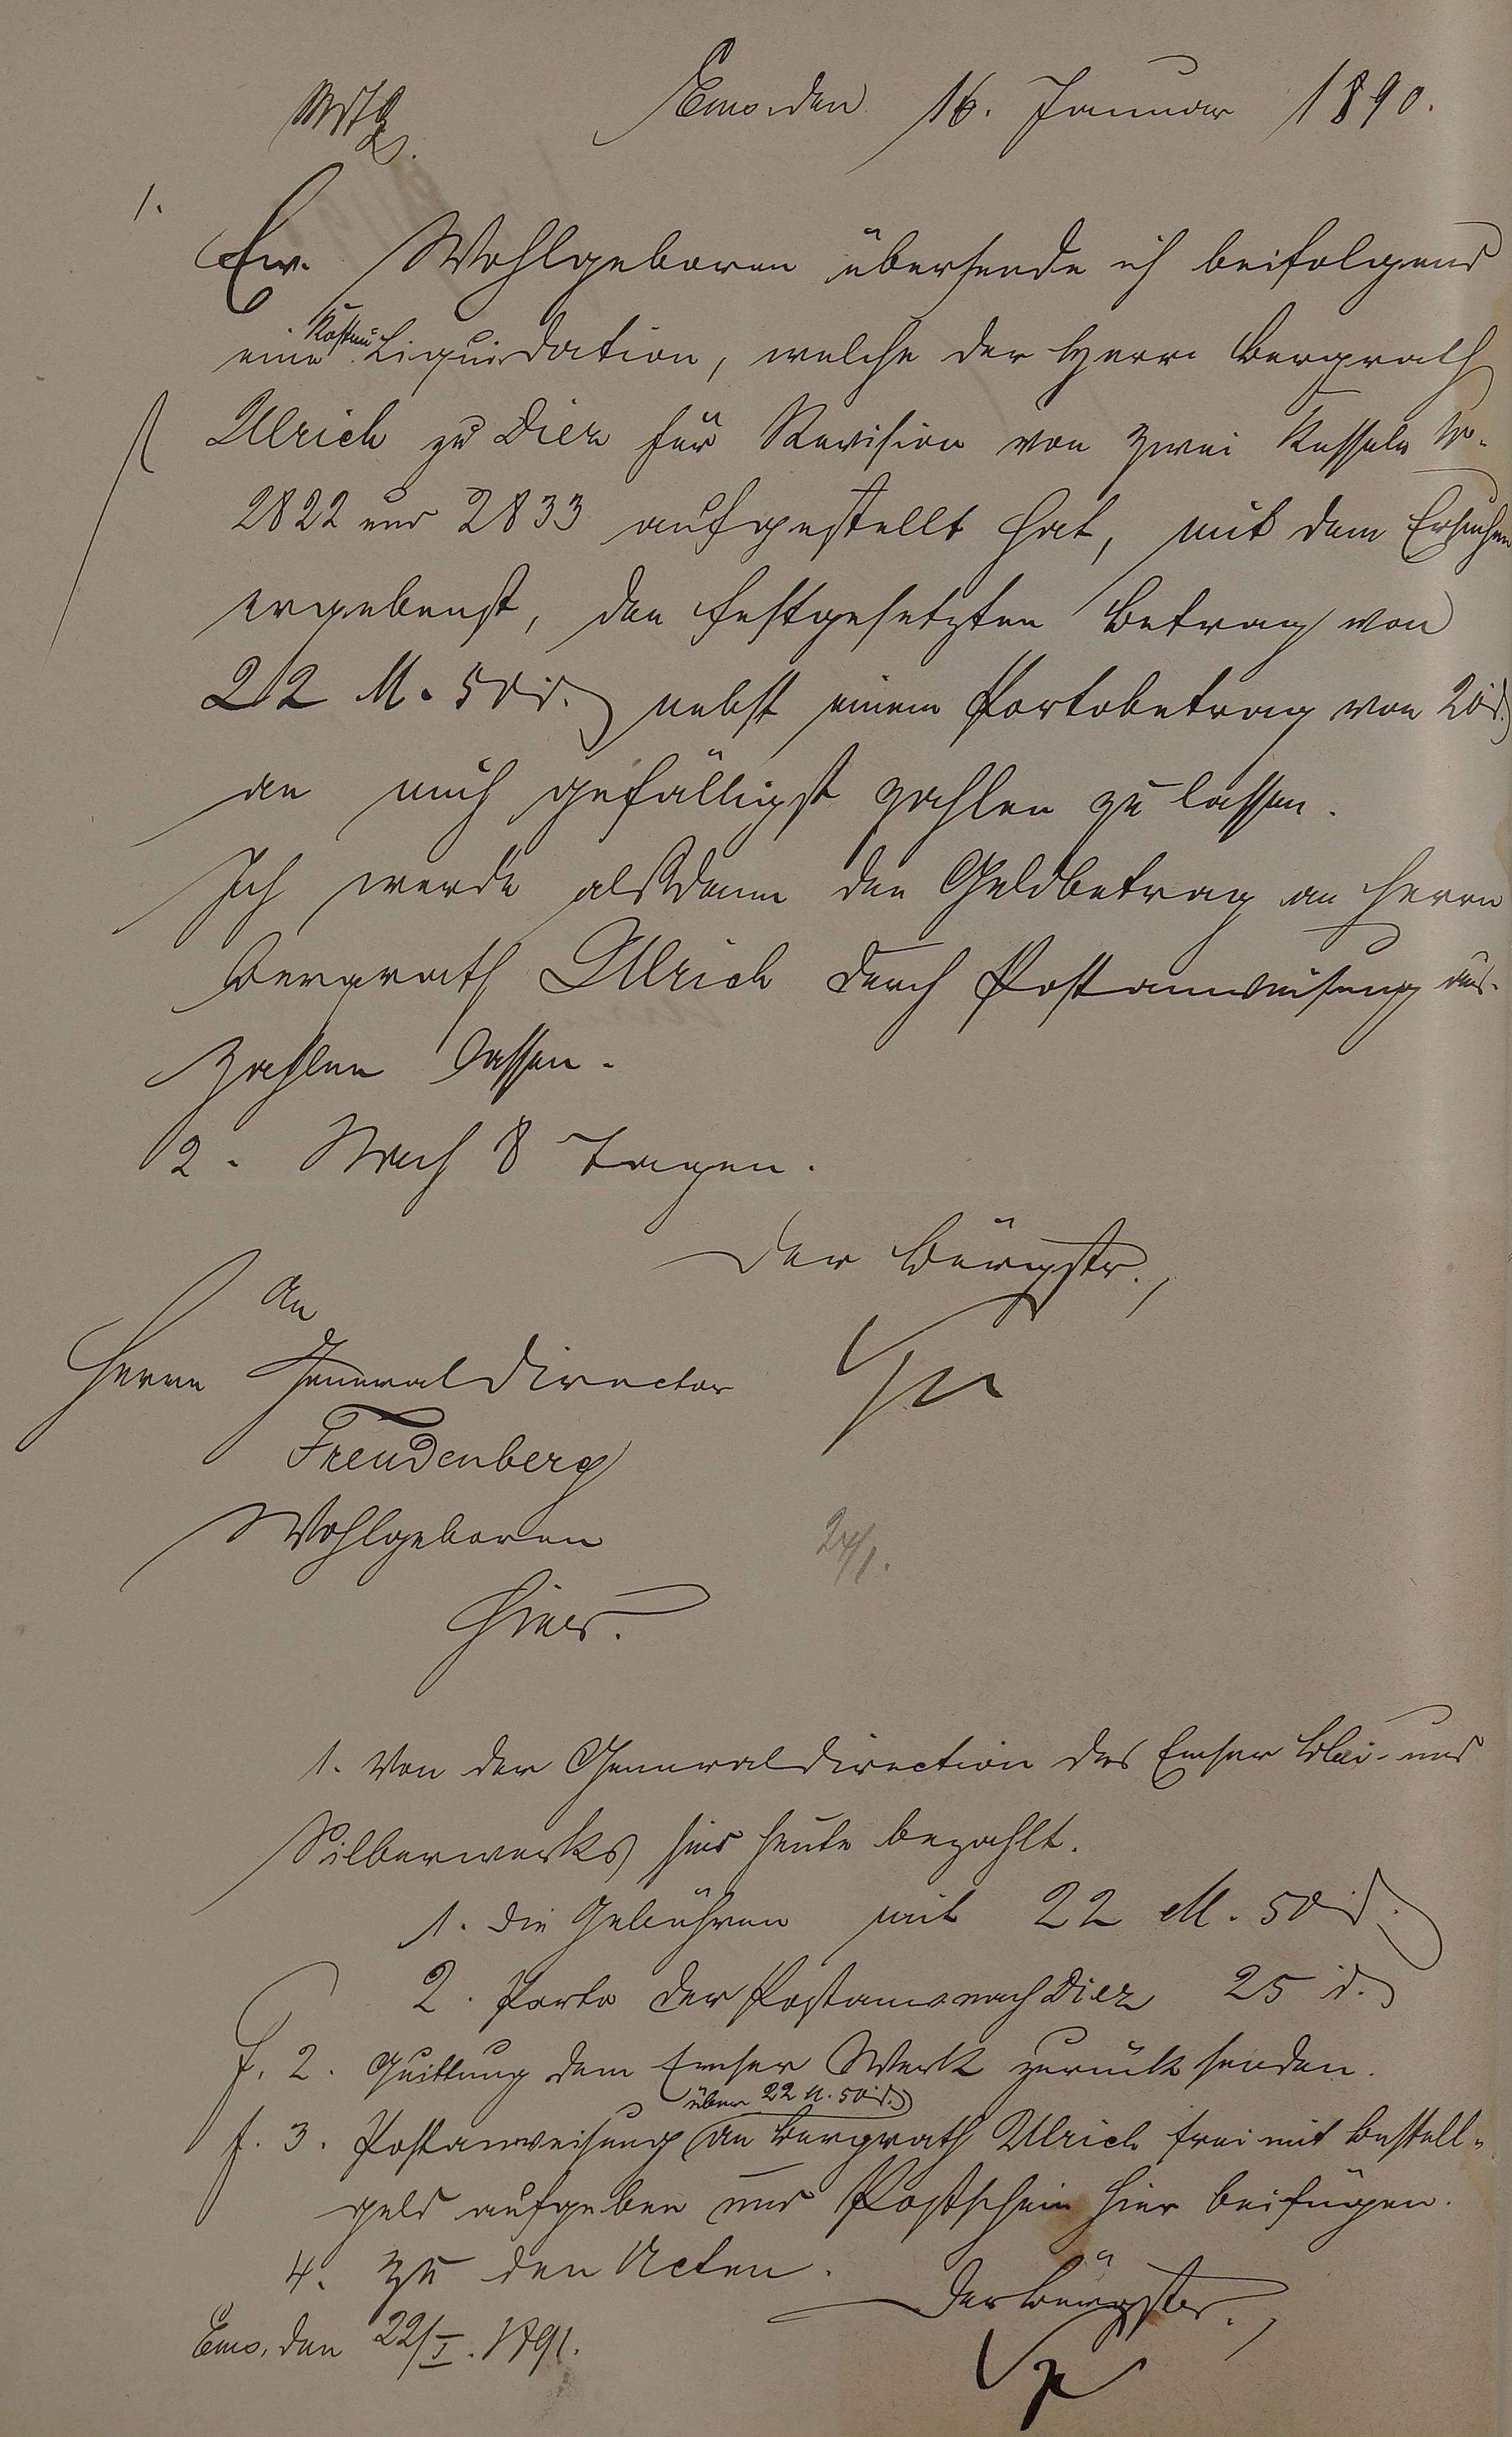 Ems, den 16. Januar 1890.
1.
Ew. Wohlgeboren übersende ich beifolgend
eine Kosten Liquidation, welche der Herr Bergrath
Ulrich zu Diez für Revision von zwei Kesseln No.
2822 und 2833 aufgestellt hat, mit dem Ersuchen
ergebenst, den festgesetzten Betrag von
22 M. 50 d. nebst einem Portobetrag von 20 d.
an mich gefälligst zahlen zu lassen.
Ich werde alsdann den Geldbetrag an Herrn
Bergrath Ulrich durch Postanweisung aus-
zahlen lassen.
2. Nach 8 Tagen.
Der Bürgstr.,
An
Herrn Generaldirector
Freudenberg
Wohlgeboren
24/1.
Hier.
1. Von der Generaldirection des Emser Blei- und
Silberwerks sind heute bezahlt.
1. die Gebühren mit 22 M. 50 d.
2. Porto der Postanw nach Diez 25 d.
f. 2. Quittung dem Emser Werk zurück senden.
über 22 M. 50 d.
f. 3. Postanweisung an Bergrath Ulrich frei mit Bestell-
geld aufgeben und Postschein hier beifügen.
4. Zu den Acten.
Der Bürgster.,
Ems, den 22/I. 1891.